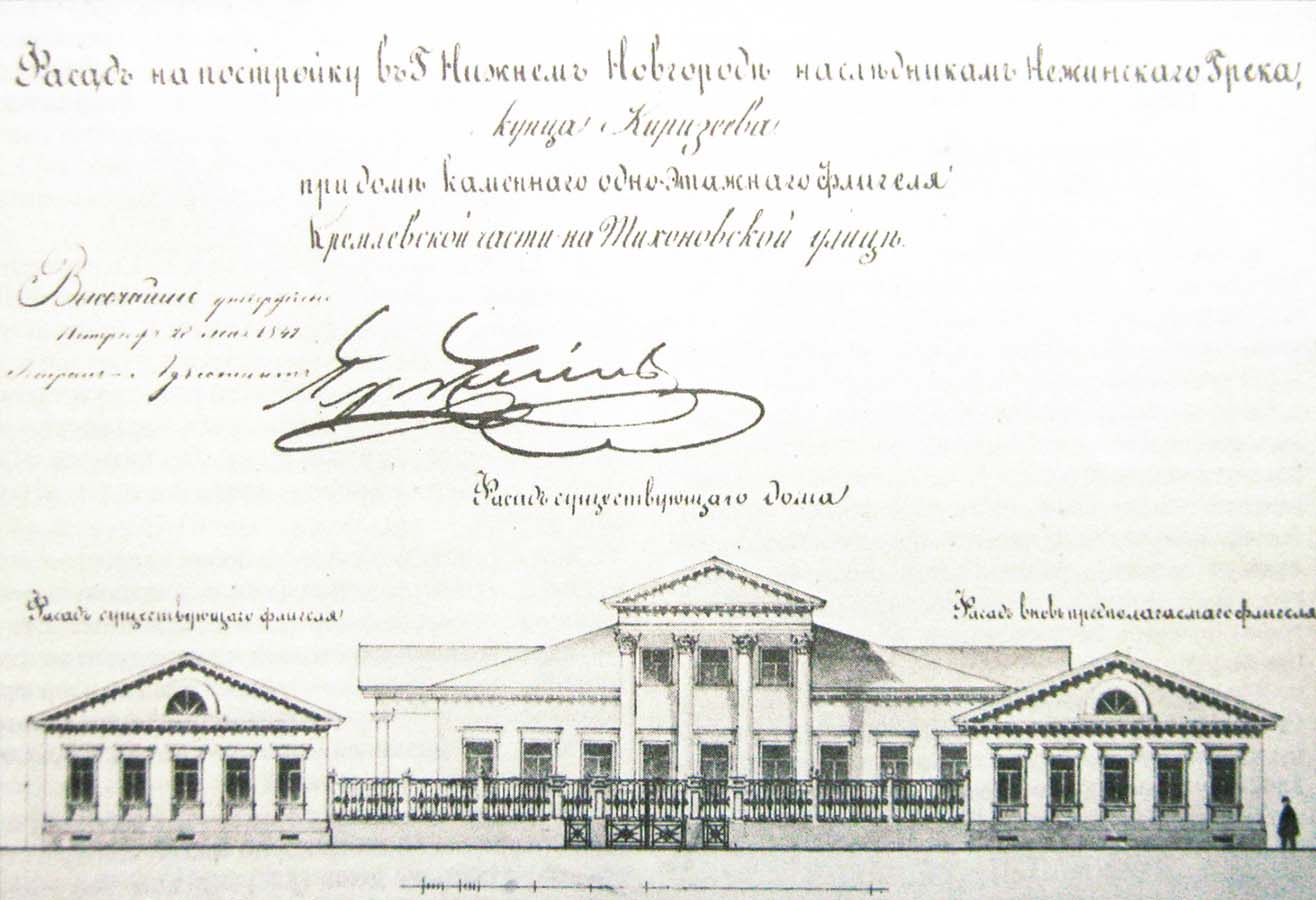 Фасадъ на постройку въ Г Нижнемъ Новгородѣ наслѣдникамъ Нежинскаго Грека,
купца Киризеева
при домѣ каменнаго одно-этажнаго флигеля
Кремлевской части на Тихоновской улицѣ.
Высочайше утверждено
мая 184
Фасадъ существующаго дома
Фасадъ существующаго флигеля
Фасадъ вновь предполагаемаго флигеля